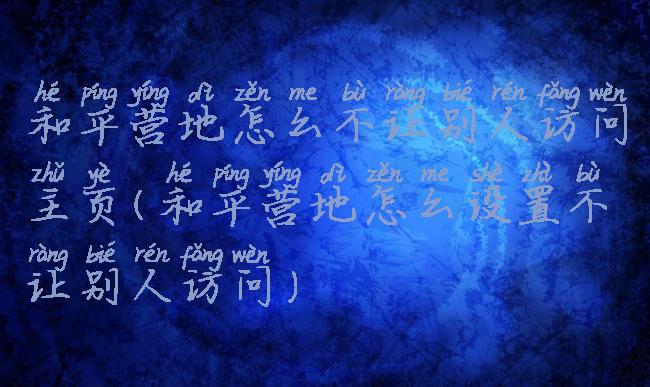 hé píng yíng dì zěn me bù ràng bié rén fǎng wèn
和平营地怎么不让别人访问
zhǔ yè hé píng yíng dì zěn me shè zhì bù
主页(和平营地怎么设置不
ràng bié rén fǎng wèn
让别人访问)